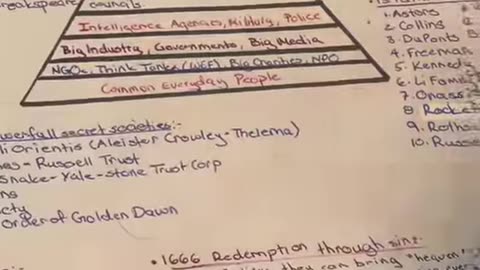 councils.
Intelligence Agencies, Military, Police
Big Industry, Governments, Big Media
NGOs, Think Tanks (WEF), Big Charities, NPO
Common Everyday People
1. Astors
2. Collins
3. DuPonts
4. Freeman
5. Kennedy
6. Li
7. Onass
8. Rocke
9. Roths
10. Russe
owerfull secret societies:-
li Orientis (Aleister Crowley-Thelema)
es - Russell Trust
Snake-Yale-stone Trust Corp
ns
cty
Order of Golden Dawn
• 1666 Redemption through sin:-
they can bring "heaven"